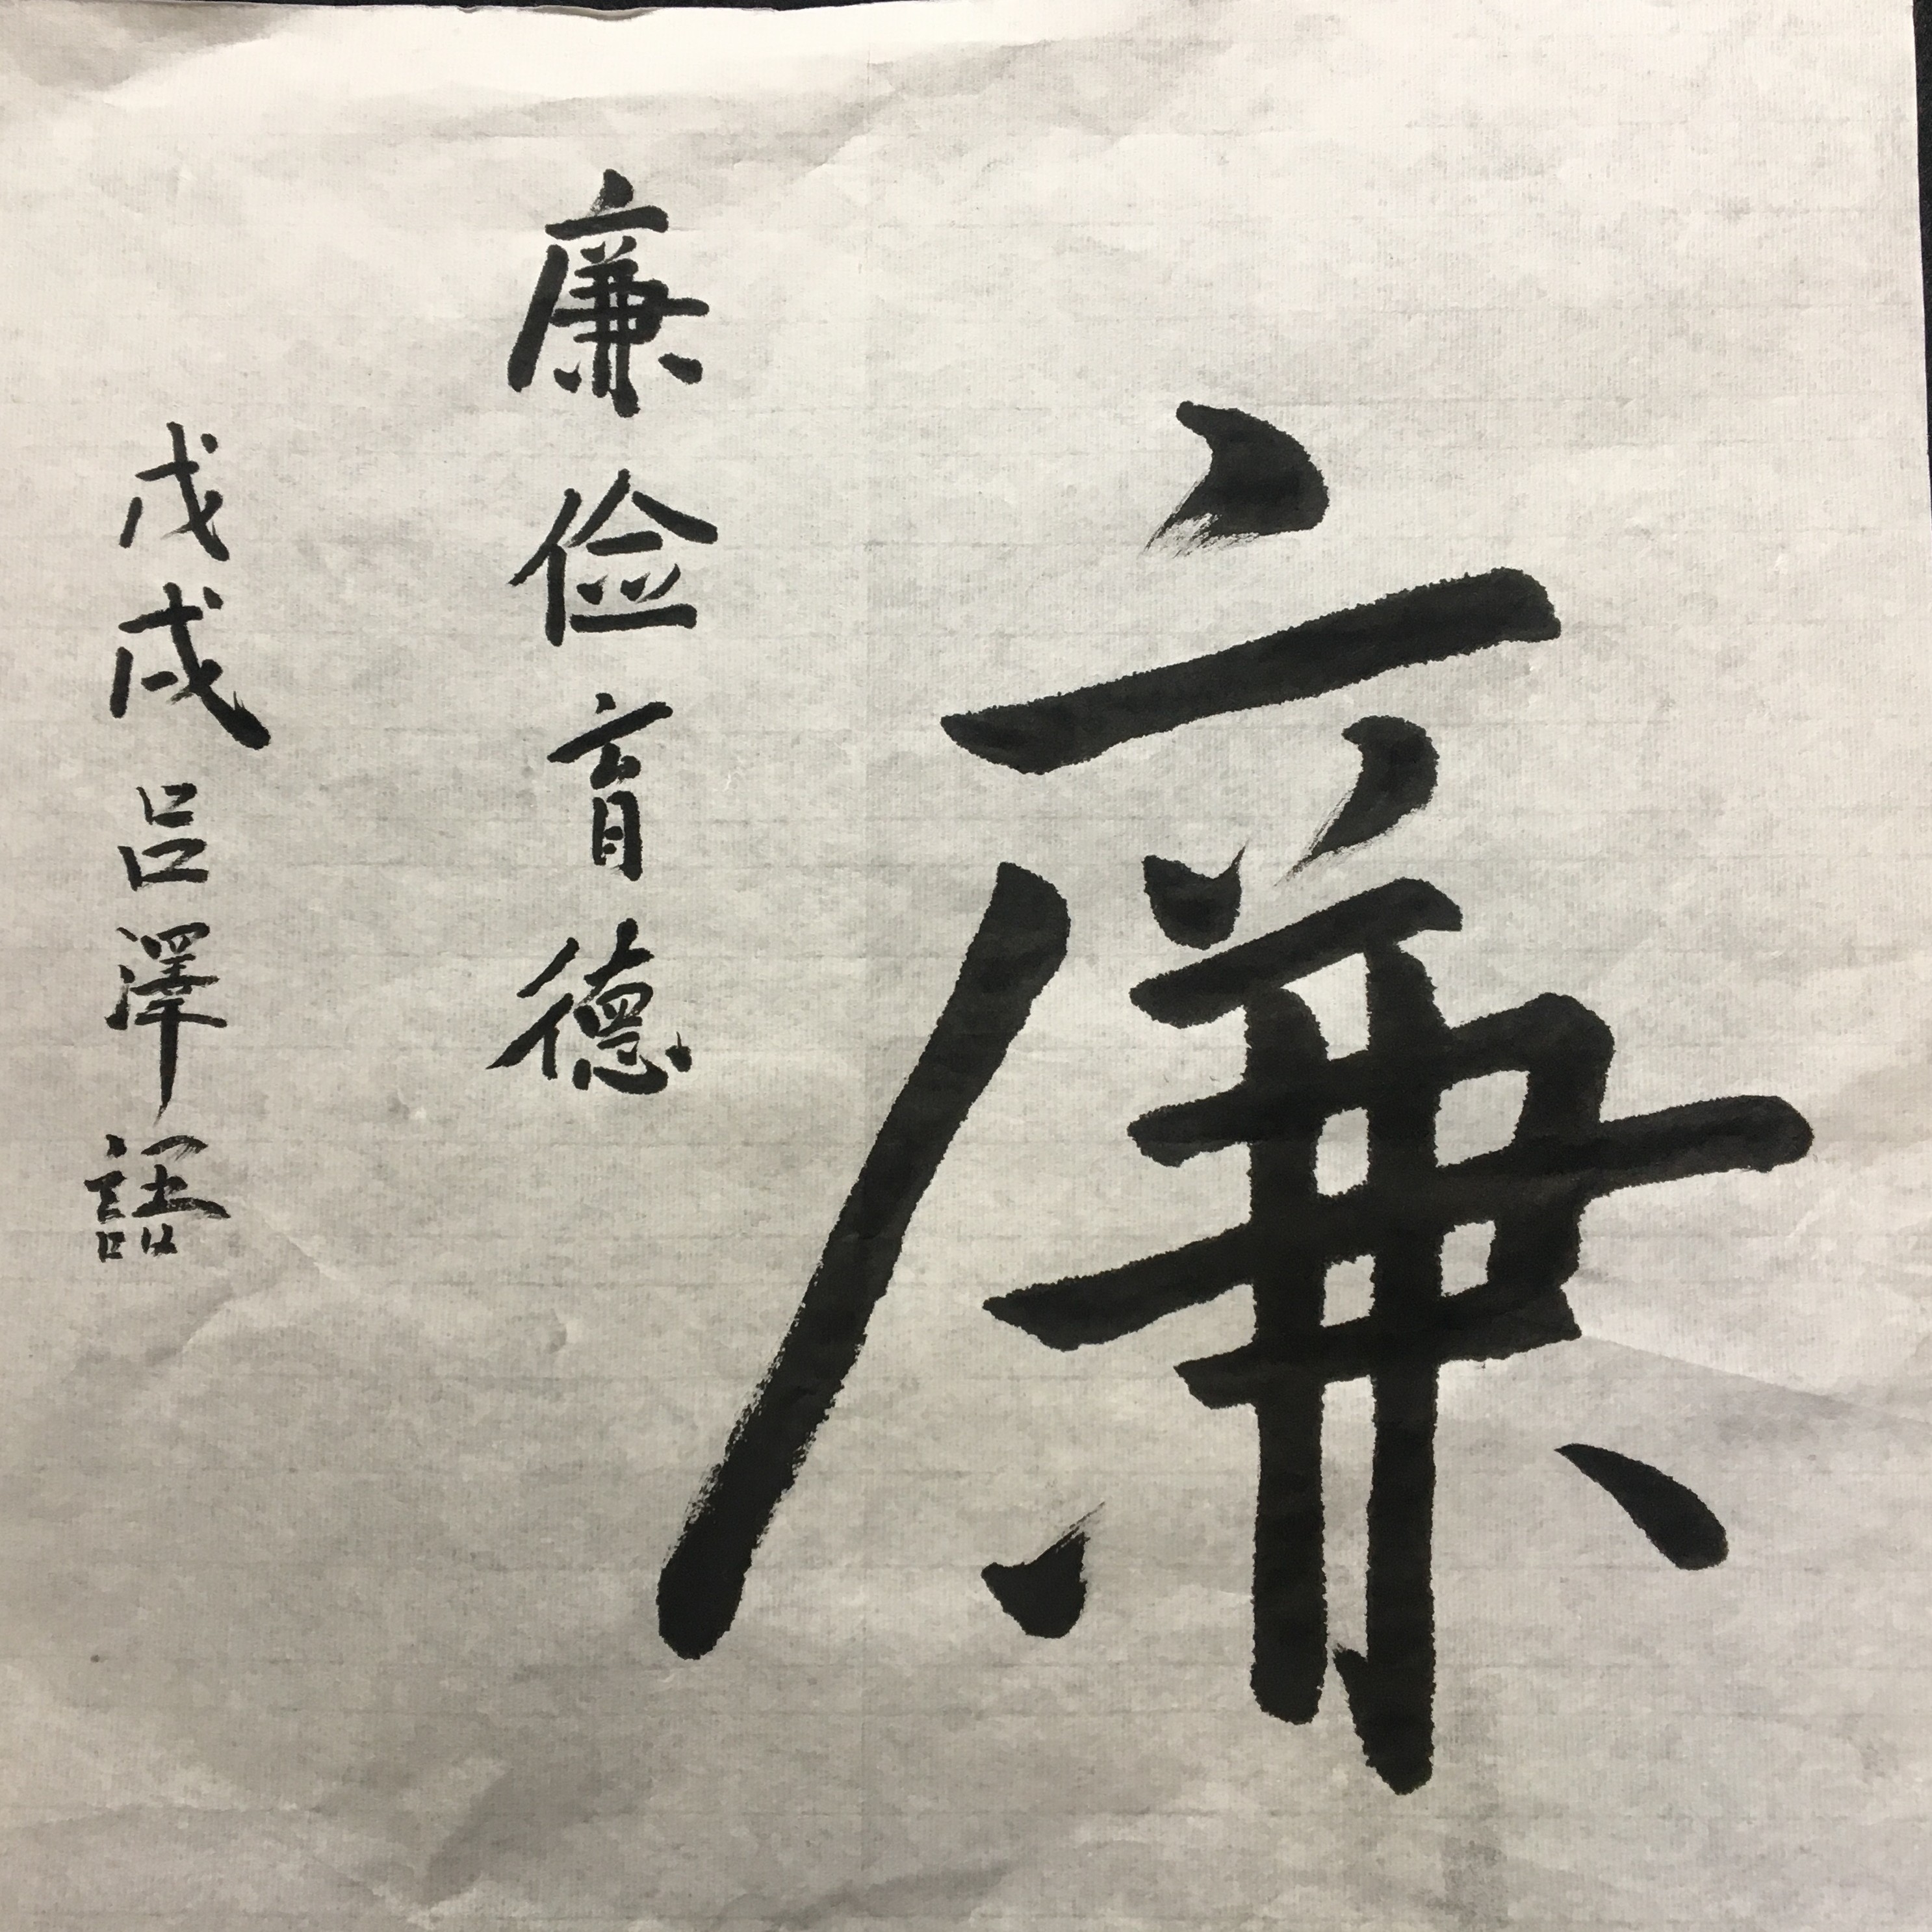 廉
廉俭育德
戊戌吕澤語